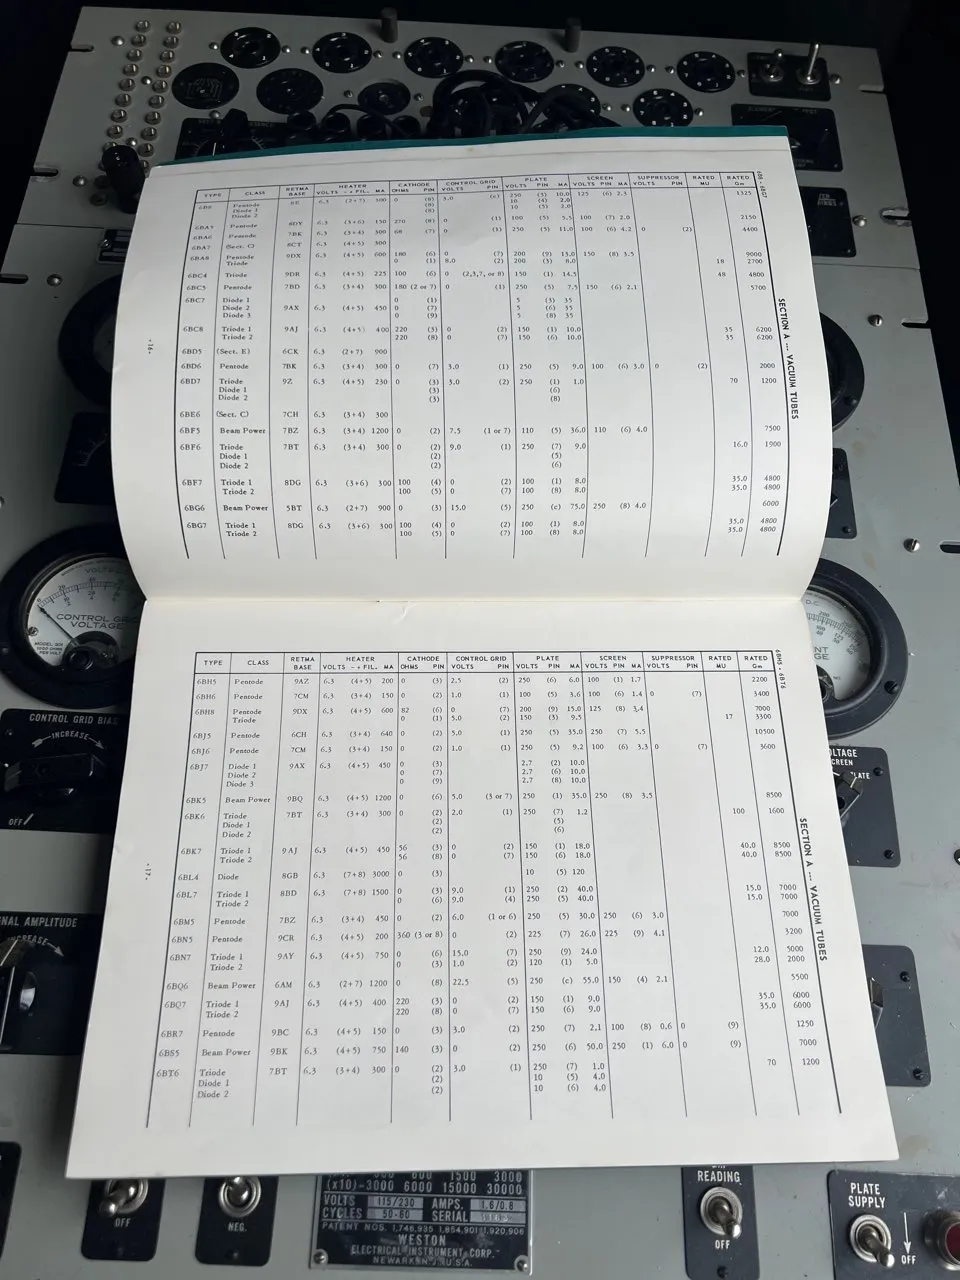 TYPE CLASS RETMA BASE HEATER VOLTS - + FIL. MA CATHODE OHMS PIN CONTROL GRID VOLTS PIN PLATE VOLTS PIN MA SCREEN VOLTS PIN MA SUPPRESSOR VOLTS PIN RATED MU RATED Gm
6B8 Pentode 8E 6.3 (2+7) 300 0 (8) 3.0 (c) 250 (3) 10.0 125 (6) 2.3 1325
Diode 1 (8) 10 (4) 2.0
Diode 2 (8) 10 (5) 2.0
6BA5 Pentode 8DY 6.3 (3+6) 150 270 (8) (1) 100 (5) 5.5 100 (7) 2.0 2150
6BA6 Pentode 7BK 6.3 (3+4) 300 68 (7) 0 (1) 250 (5) 11.0 100 (6) 4.2 0 (2) 4400
6BA7 (Sect. C) 8CT 6.3 (4+5) 300
6BA8 Pentode 9DX 6.3 (4+5) 600 180 (6) 0 (7) 200 (9) 13.0 150 (8) 3.5 9000
Triode 0 (1) 8.0 (2) 200 (3) 8.0 18 2700
6BC4 Triode 9DR 6.3 (4+5) 225 100 (6) 0 (2,3,7, or 8) 150 (1) 14.5 48 4800
6BC5 Pentode 7BD 6.3 (3+4) 300 180 (2 or 7) 0 (1) 250 (5) 7.5 150 (6) 2.1 5700
6BC7 Diode 1 0 (1) 5 (3) 35
Diode 2 9AX 6.3 (4+5) 450 0 (7) 5 (6) 35
Diode 3 0 (9) 5 (8) 35
6BC8 Triode 1 9AJ 6.3 (4+5) 400 220 (3) 0 (2) 150 (1) 10.0 35 6200
Triode 2 220 (8) 0 (7) 150 (6) 10.0 35 6200
6BD5 (Sect. E) 6CK 6.3 (2+7) 900
6BD6 Pentode 7BK 6.3 (3+4) 300 0 (7) 3.0 (1) 250 (5) 9.0 100 (6) 3.0 0 (2) 2000
6BD7 Triode 9Z 6.3 (4+5) 230 0 (3) 3.0 (2) 250 (1) 1.0 70 1200
Diode 1 (3) (6)
Diode 2 (3) (8)
6BE6 (Sect. C) 7CH 6.3 (3+4) 300
6BF5 Beam Power 7BZ 6.3 (3+4) 1200 0 (2) 7.5 (1 or 7) 110 (5) 36.0 110 (6) 4.0 7500
6BF6 Triode 7BT 6.3 (3+4) 300 0 (2) 9.0 (1) 250 (7) 9.0 16.0 1900
Diode 1 (2) (5)
Diode 2 (2) (6)
6BF7 Triode 1 8DG 6.3 (3+6) 300 100 (4) 0 (2) 100 (1) 8.0 35.0 4800
Triode 2 100 (5) 0 (7) 100 (8) 8.0 35.0 4800
6BG6 Beam Power 5BT 6.3 (2+7) 900 0 (3) 15.0 (5) 250 (c) 75.0 250 (8) 4.0 6000
6BG7 Triode 1 8DG 6.3 (3+6) 300 100 (4) 0 (2) 100 (1) 8.0 35.0 4800
Triode 2 100 (5) 0 (7) 100 (8) 8.0 35.0 4800
6B8 - 6BG7
SECTION A --- VACUUM TUBES
-16-
TYPE CLASS RETMA BASE HEATER VOLTS - + FIL. MA CATHODE OHMS PIN CONTROL GRID VOLTS PIN PLATE VOLTS PIN MA SCREEN VOLTS PIN MA SUPPRESSOR VOLTS PIN RATED MU RATED Gm
6BH5 Pentode 9AZ 6.3 (4+5) 200 0 (3) 2.5 (2) 250 (6) 6.0 100 (1) 1.7 2200
6BH6 Pentode 7CM 6.3 (3+4) 150 0 (2) 1.0 (1) 100 (5) 3.6 100 (6) 1.4 0 (7) 3400
6BH8 Pentode 9DX 6.3 (4+5) 600 82 (6) 0 (7) 200 (9) 15.0 125 (8) 3.4 7000
Triode 0 (1) 5.0 (2) 150 (3) 9.5 17 3300
6BJ5 Pentode 6CH 6.3 (3+4) 640 0 (2) 5.0 (1) 250 (5) 35.0 250 (7) 5.5 10500
6BJ6 Pentode 7CM 6.3 (3+4) 150 0 (2) 1.0 (1) 250 (5) 9.2 100 (6) 3.3 0 (7) 3600
6BJ7 Diode 1 9AX 6.3 (4+5) 450 0 (3) 2.7 (2) 10.0
Diode 2 0 (7) 2.7 (6) 10.0
Diode 3 0 (9) 2.7 (8) 10.0
6BK5 Beam Power 9BQ 6.3 (4+5) 1200 0 (6) 5.0 (3 or 7) 250 (1) 35.0 250 (8) 3.5 8500
6BK6 Triode 7BT 6.3 (3+4) 300 0 (2) 2.0 (1) 250 (7) 1.2 100 1600
Diode 1 (2) (5)
Diode 2 (2) (6)
6BK7 Triode 1 9AJ 6.3 (4+5) 450 56 (3) 0 (2) 150 (1) 18.0 40.0 8500
Triode 2 56 (8) 0 (7) 150 (6) 18.0 40.0 8500
6BL4 Diode 8GB 6.3 (7+8) 3000 0 (3) 10 (5) 120
6BL7 Triode 1 8BD 6.3 (7+8) 1500 0 (3) 9.0 (1) 250 (2) 40.0 15.0 7000
Triode 2 0 (6) 9.0 (4) 250 (5) 40.0 15.0 7000
6BM5 Pentode 7BZ 6.3 (3+4) 450 0 (2) 6.0 (1 or 6) 250 (5) 30.0 250 (6) 3.0 7000
6BN5 Pentode 9CR 6.3 (4+5) 200 360 (3 or 8) 0 (2) 225 (7) 26.0 225 (9) 4.1 3200
6BN7 Triode 1 9AY 6.3 (4+5) 750 0 (6) 15.0 (7) 250 (9) 24.0 12.0 5000
Triode 2 0 (3) 1.0 (2) 120 (1) 5.0 28.0 2000
6BQ6 Beam Power 6AM 6.3 (2+7) 1200 0 (8) 22.5 (5) 250 (c) 55.0 150 (4) 2.1 5500
6BQ7 Triode 1 9AJ 6.3 (4+5) 400 220 (3) 0 (2) 150 (1) 9.0 35.0 6000
Triode 2 220 (8) 0 (7) 150 (6) 9.0 35.0 6000
6BR7 Pentode 9BC 6.3 (4+5) 150 0 (3) 3.0 (2) 250 (7) 2.1 100 (8) 0.6 0 (9) 1250
6BS5 Beam Power 9BK 6.3 (4+5) 750 140 (3) 0 (2) 250 (6) 50.0 250 (1) 6.0 0 (9) 7000
6BT6 Triode 7BT 6.3 (3+4) 300 0 (2) 3.0 (1) 250 (7) 1.0 70 1200
Diode 1 (2) 10 (5) 4.0
Diode 2 (2) 10 (6) 4.0
6BH5 - 6BT6
SECTION A --- VACUUM TUBES
-17-
CONTROL GRID
VOLTAGE
CONTROL GRID BIAS
INCREASE
OFF
NAL AMPLITUDE
CREASE
LTAGE
CREEN
PLATE
D.C
OFF
NEG.
600 1500 3000
(x10)-3000 6000 15000 30000
VOLTS 115/230 AMPS. 1.6/0.8
CYCLES 50-60 SERIAL
PATENT NOS. 1,746,935 1,854,901 1,920,906
WESTON
ELECTRICAL INSTRUMENT CORP.
NEWARK N.J. U.S.A.
READING
OFF
PLATE
SUPPLY
OFF